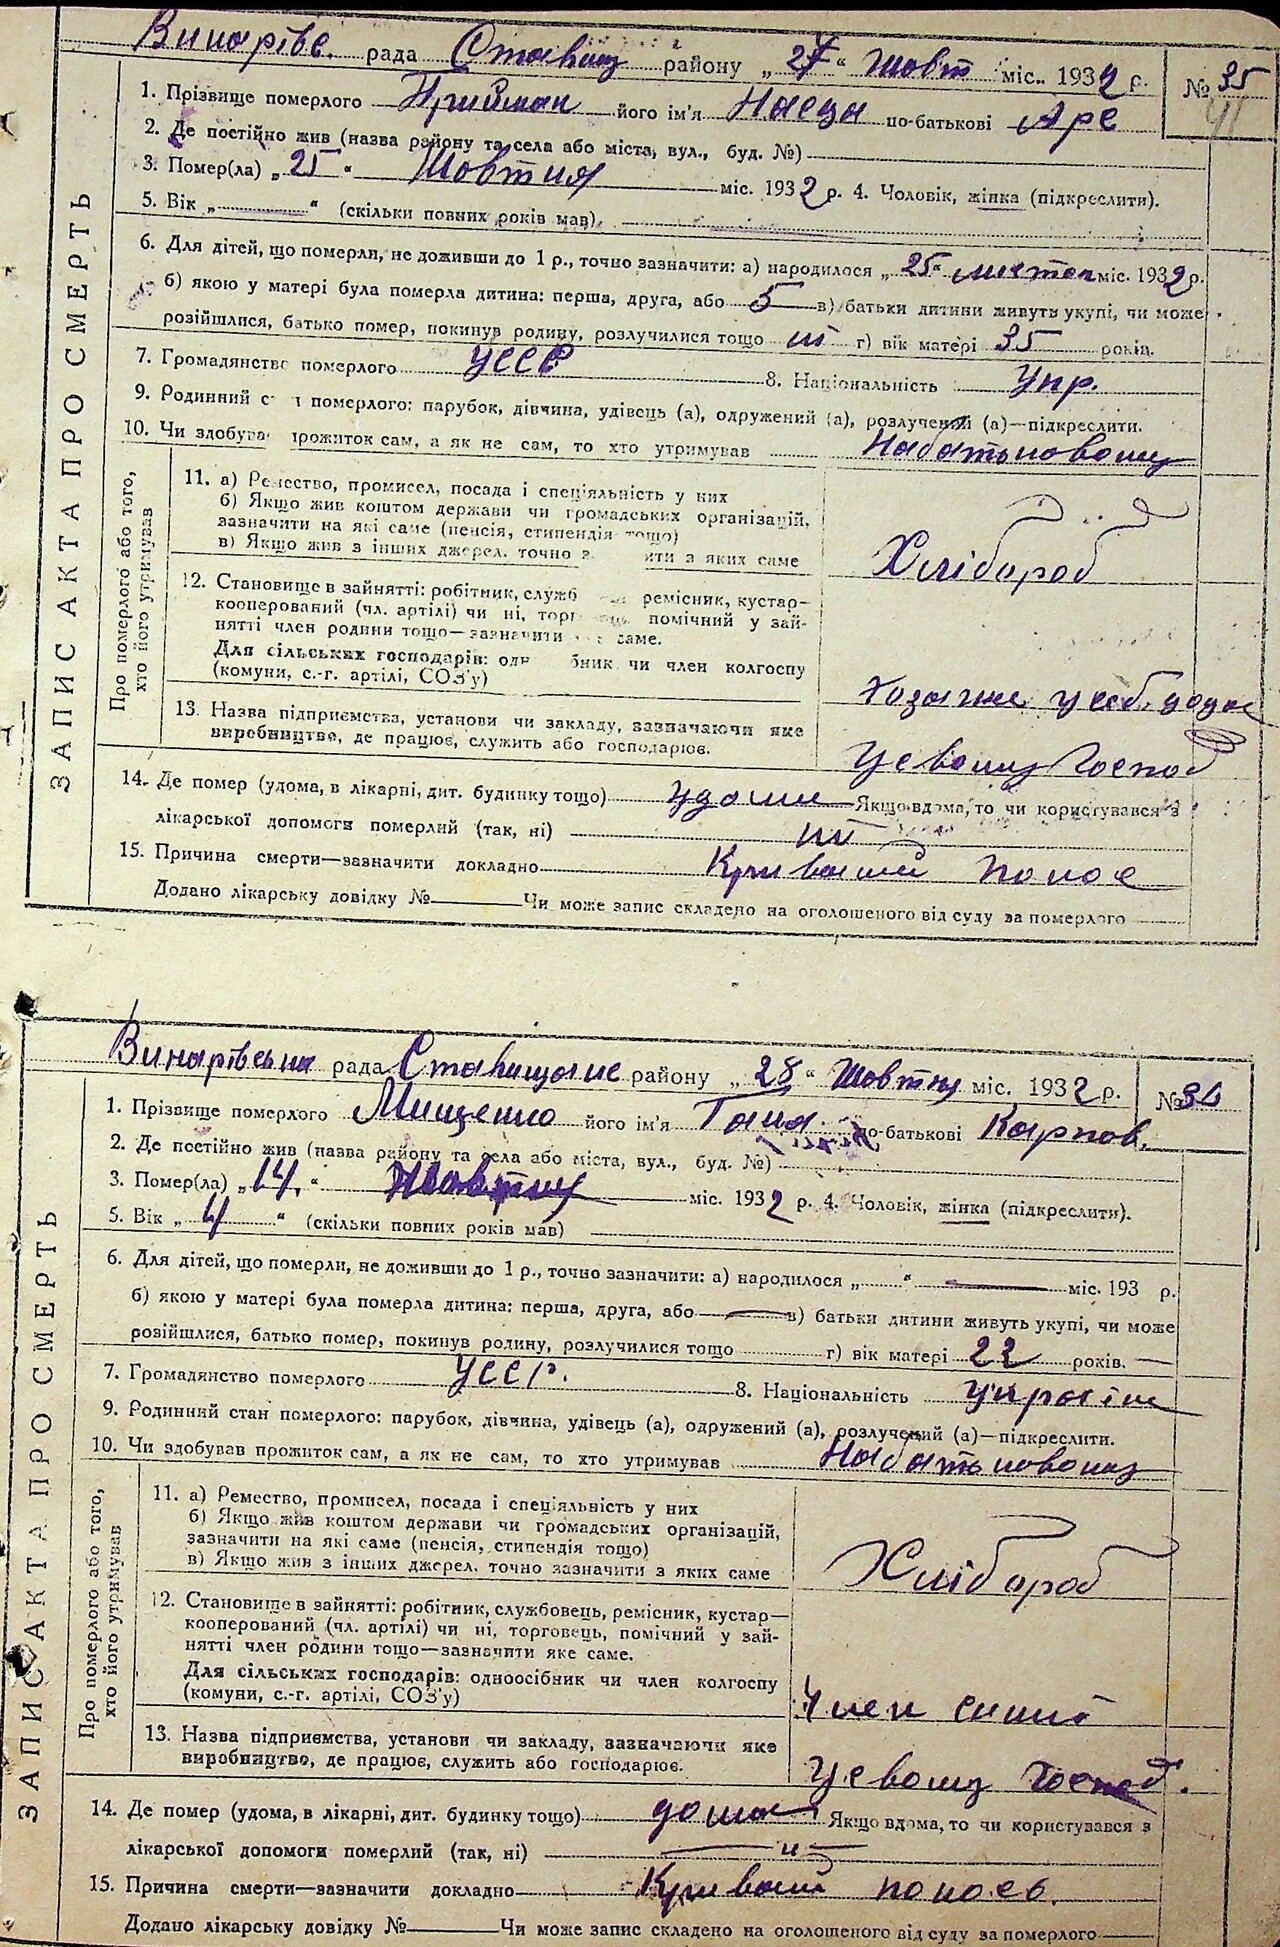 Винарівс. рада Ставищ району „ 27 “ Жовт міс.. 1932 р. № 35
41
1. Прізвище померлого Прийман його ім'я по-батькові
2. Де постійно жив (назва району та села або міста, вул., буд. №)
3. Помер(ла) „ 25 “ Жовтня міс. 1932 р. 4. Чоловік, жінка (підкреслити).
5. Вік „ “ (скільки повних років мав)
6. Для дітей, що померли, не доживши до 1 р., точно зазначити: а) народилося „ 25 “ міс. 1932 р.
б) якою у матері була померла дитина: перша, друга, або 5 в) батьки дитини живуть укупі, чи може
розійшлися, батько помер, покинув родину, розлучилися тощо г) вік матері 35 років.
7. Громадянство померлого УССР 8. Національність Укр.
9. Родинний с н померлого: парубок, дівчина, удівець (а), одружений (а), розлучений (а)—підкреслити.
10. Чи здобува прожиток сам, а як не сам, то хто утримував На батьковому
ЗАПИС АКТА ПРО СМЕРТЬ
Про померлого або того,
хто його утримував
11. а) Ремество, промисел, посада і спеціяльність у них
б) Якщо жив коштом держави чи громадських організацій,
зазначити на які саме (пенсія, стипендія тощо)
в) Якщо жив з інших джерел, точно з ити з яких саме
Хлібороб
12. Становище в зайнятті: робітник, служб ремісник, кустар-
кооперований (чл. артілі) чи ні, торг помічний у зай-
нятті член родини тощо—зазначити саме.
Для сільських господарів: одн бник чи член колгоспу
(комуни, с.-г. артілі, СОЗ'у)
13. Назва підприємства, установи чи закладу, зазначаючи яке
виробництво, де працює, служить або господарює.
У своому Господ
14. Де помер (удома, в лікарні, дит. будинку тощо) удома Якщо вдома, то чи користувався з
лікарської допомоги померлий (так, ні) ні
15. Причина смерти—зазначити докладно Кривавий понос
Додано лікарську довідку № Чи може запис складено на оголошеного від суду за померлого
Винарівська рада Ставищанс району „ 28 “ Жовтня міс. 1932 р. № 34
1. Прізвище померлого Мищенко його ім'я Ганя по-батькові Карпов.
2. Де постійно жив (назва району та села або міста, вул., буд. №)
3. Помер(ла) „ 14. “ Жовтня міс. 1932 р. 4. Чоловік, жінка (підкреслити).
5. Вік „ 4 “ (скільки повних років мав)
6. Для дітей, що померли, не доживши до 1 р., точно зазначити: а) народилося „ “ — міс. 193 р.
б) якою у матері була померла дитина: перша, друга, або — в) батьки дитини живуть укупі, чи може
розійшлися, батько помер, покинув родину, розлучилися тощо г) вік матері 22 років. —
7. Громадянство померлого УССР. 8. Національність
9. Родинний стан померлого: парубок, дівчина, удівець (а), одружений (а), розлучений (а)—підкреслити.
10. Чи здобував прожиток сам, а як не сам, то хто утримував На батьковому
ЗАПИС АКТА ПРО СМЕРТЬ
Про померлого або того,
хто його утримував
11. а) Ремество, промисел, посада і спеціяльність у них
б) Якщо жив коштом держави чи громадських організацій,
зазначити на які саме (пенсія, стипендія тощо)
в) Якщо жив з інших джерел, точно зазначити з яких саме
Хлібороб
12. Становище в зайнятті: робітник, службовець, ремісник, кустар—
кооперований (чл. артілі) чи ні, торговець, помічний у зай-
нятті член родини тощо—зазначити яке саме.
Для сільських господарів: одноосібник чи член колгоспу
(комуни, с.-г. артілі, СОЗ'у)
Член
13. Назва підприємства, установи чи закладу, зазначаючи яке
виробництво, де працює, служить або господарює.
У своому Господ.
14. Де помер (удома, в лікарні, дит. будинку тощо) дома Якщо вдома, то чи користувався з
лікарської допомоги померлий (так, ні)
15. Причина смерти—зазначити докладно Кривавий понос
Додано лікарську довідку № Чи може запис складено на оголошеного від суду за померлого